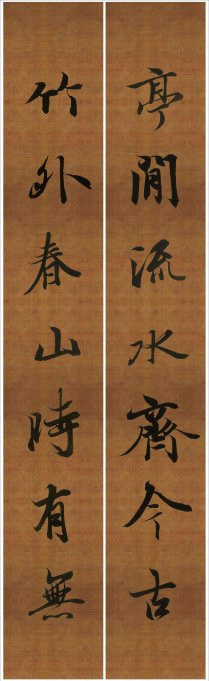 亭間流水齊今古
竹外春山時有無